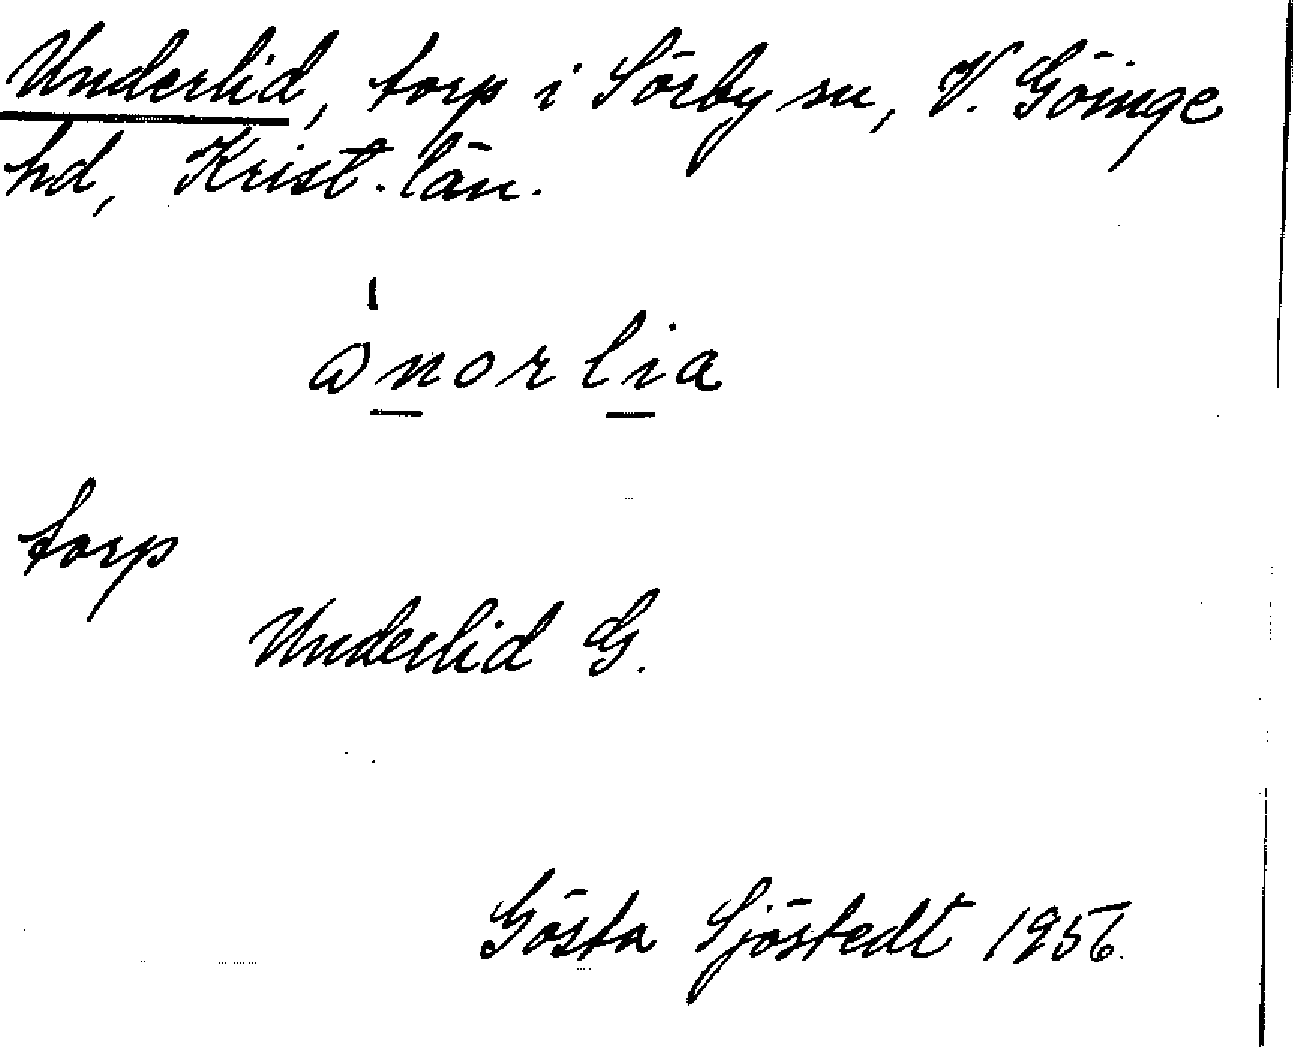 Underlid, torp i Sörby sn, V. Göinge
hd, Krist. län.
torp
Underlid G.
Gösta Sjöstedt 1956.